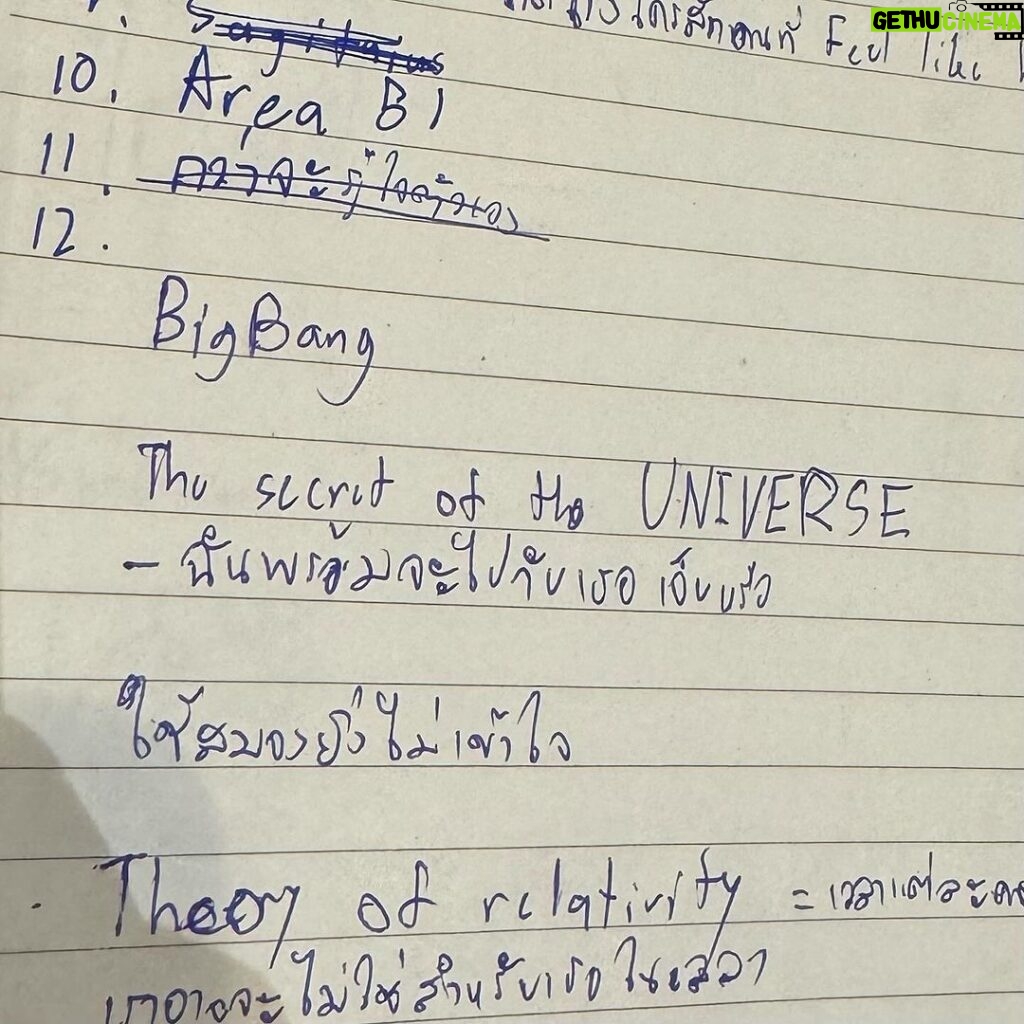 GETHUCINEMA
Feel like
10. Area B1
11.
12.
BigBang
The secret of the UNIVERSE
- ฉันพร้อมจะไปกับเธอ
ใช้สมองยิ่งไม่เข้าใจ
Theory of relativity = เวลาแต่ละคน
เราอาจจะไม่ใช่สำหรับเธอในเวลา